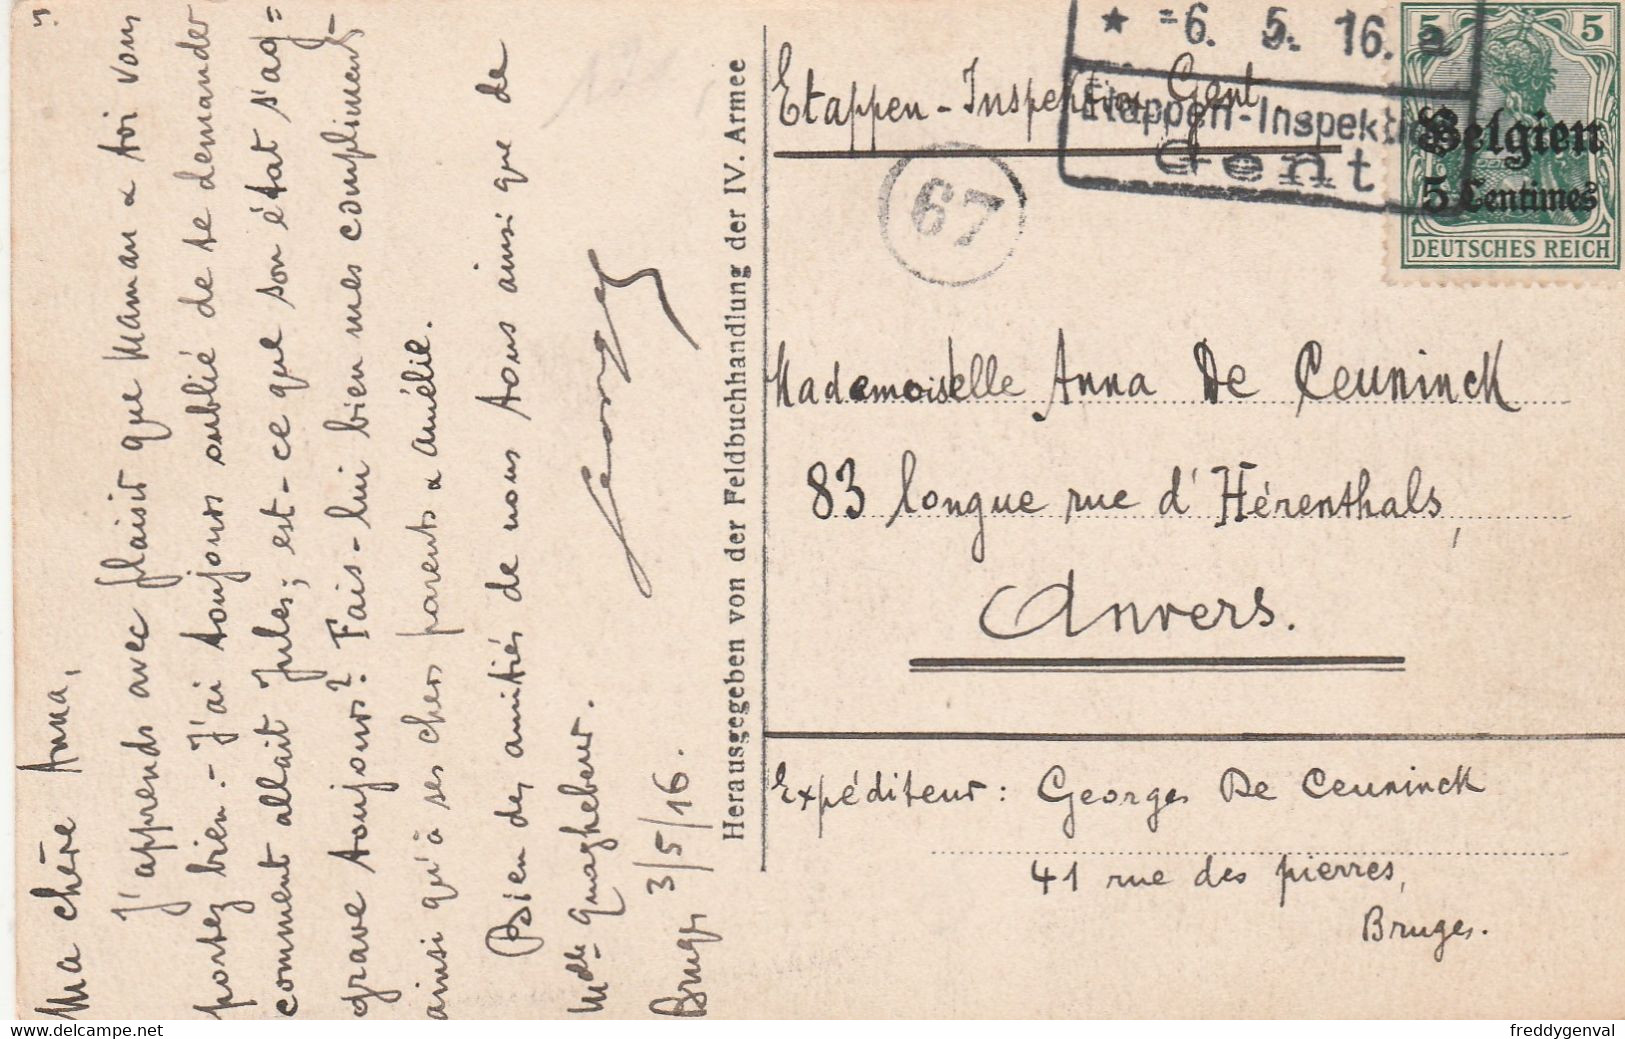 Ma chère Anna,
J'apprends avec plaisir que Maman & toi vous
portez bien.- J'ai toujours oublié de te demander
comment allait Jules; est-ce que son état s'ag=
grave toujours? Fais-lui bien mes compliments
ainsi qu'à ses chers parents & Amélie.
Bien des amitiés de nous tous ainsi que de
Mdlle Quaghebeur.
Georges
Bruges 3/5/16.
Herausgegeben von der Feldbuchhandlung der IV. Armee
Etappen-Inspektion Gent
* -6. 5. 16.
Etappen-Inspektion
Gent
67
5 5
Belgien
5 Centimes
DEUTSCHES REICH
Mademoiselle Anna De Ceuninck
83 longue rue d'Hérenthals,
Anvers.
Expéditeur: Georges De Ceuninck
41 rue des pierres,
Bruges.
www.delcampe.net
freddygenval